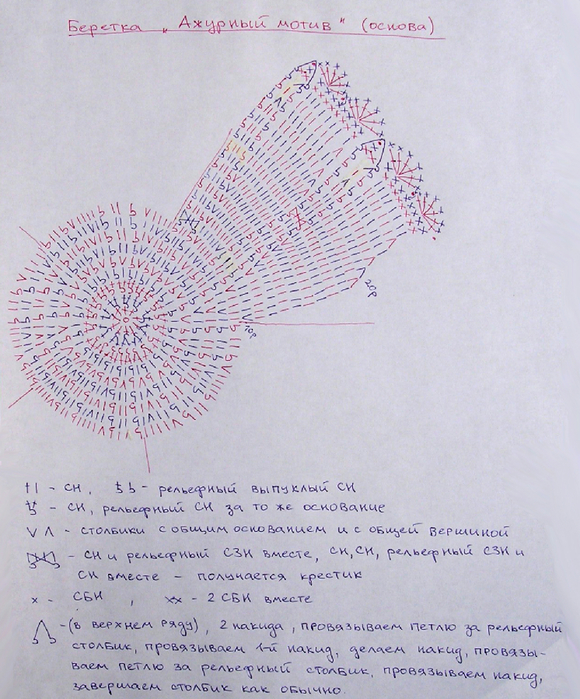 Беретка „Ажурный мотив" (основа)
20р
10р
- СН, - рельефный выпуклый СН
- СН, рельефный СН за то же основание
V Λ - столбики с общим основанием и с общей вершиной
- СН и рельефный С3Н вместе, СН, СН, рельефный С3Н и
СН вместе - получается крестик
x - СБН , xx - 2 СБН вместе
- (в верхнем ряду), 2 накида, провязываем петлю за рельефный
столбик, провязываем 1-й накид, делаем накид, провязы-
ваем петлю за рельефный столбик, провязываем накид,
завершаем столбик как обычно.